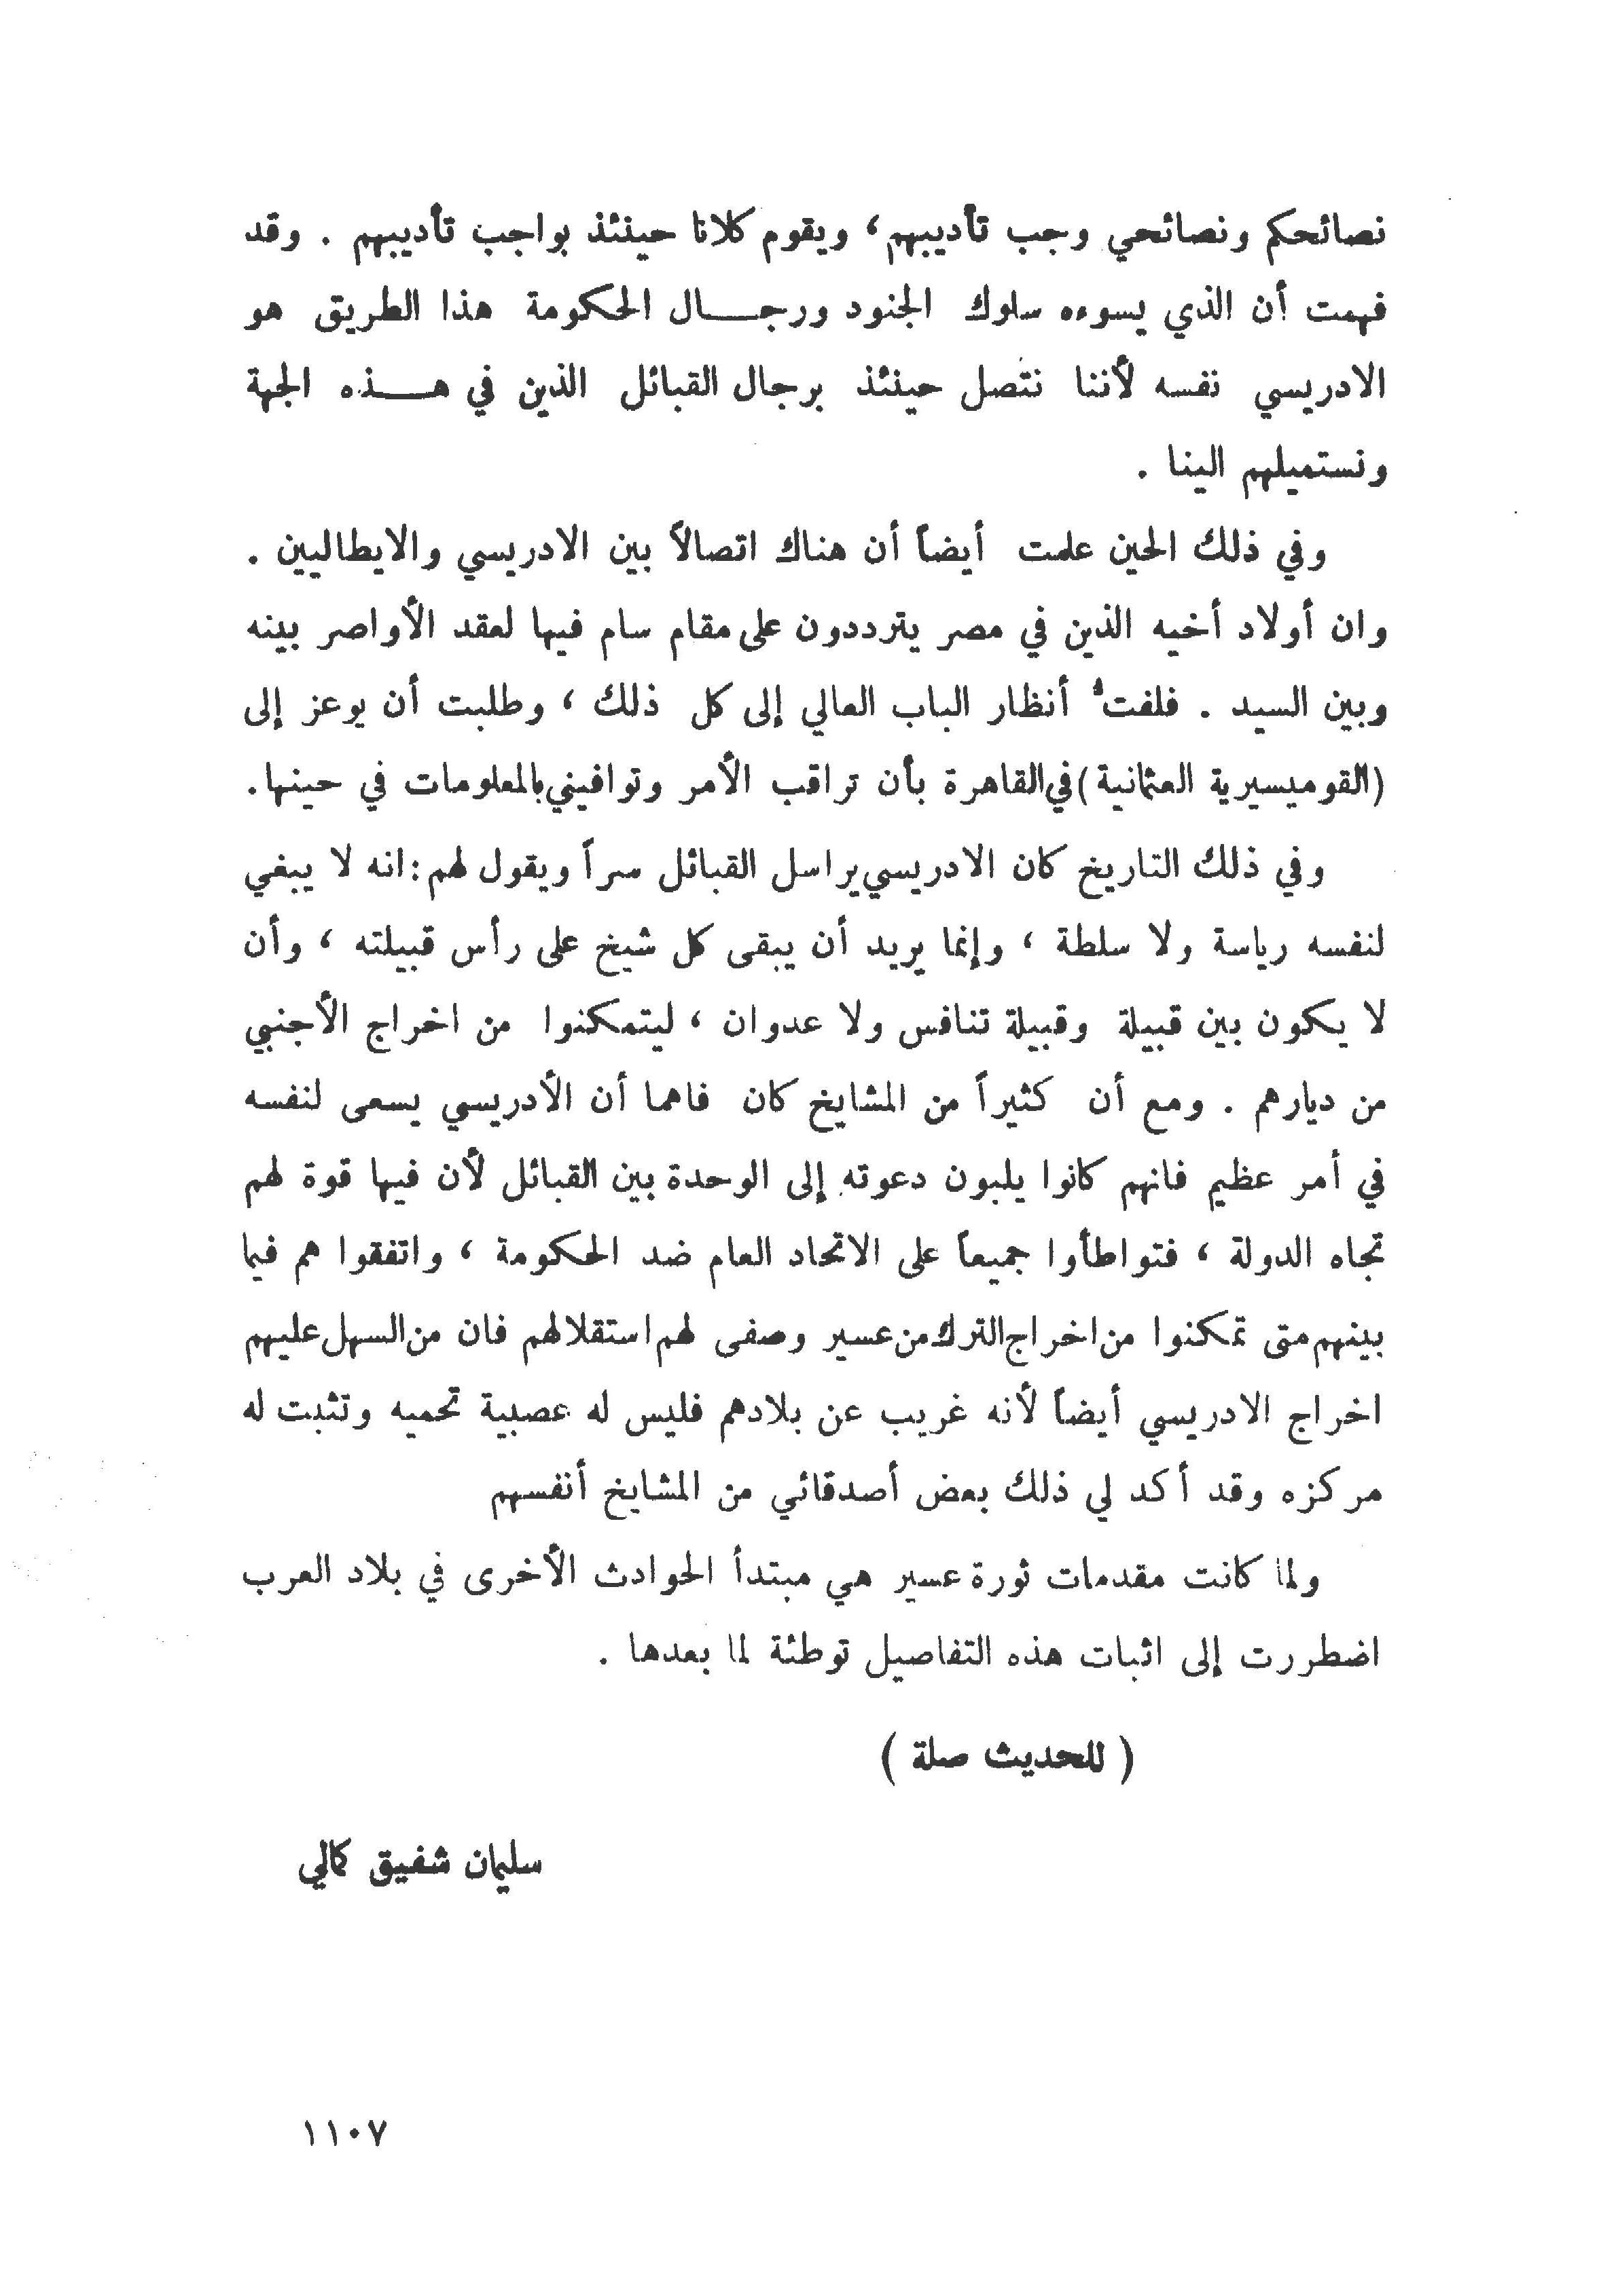 نصائحكم ونصائحي وجب تأديبهم، ويقوم كلانا حينئذ بواجب تأديبهم . وقد
فهمت أن الذي يسوءه سلوك الجنود ورجـــال الحكومة هذا الطريق هو
الادريسي نفسه لأننا نتصل حينئذ برجال القبائل الذين في هـــذه الجهة
ونستميلهم الينا .
وفي ذلك الحين علمت أيضاً أن هناك اتصالاً بين الادريسي والايطاليين .
وان أولاد أخيه الذين في مصر يترددون على مقام سام فيها لعقد الأواصر بينه
وبين السيد . فلفتُ أنظار الباب العالي إلى كل ذلك ، وطلبت أن يوعز إلى
(القوميسيرية العثمانية) في القاهرة بأن تراقب الأمر وتوافيني بالمعلومات في حينها.
وفي ذلك التاريخ كان الادريسي يراسل القبائل سراً ويقول لهم: انه لا يبغي
لنفسه رياسة ولا سلطة ، وإنما يريد أن يبقى كل شيخ على رأس قبيلته ، وأن
لا يكون بين قبيلة وقبيلة تنافس ولا عدوان ، ليتمكنوا من اخراج الأجنبي
من ديارهم . ومع أن كثيراً من المشايخ كان فاهما أن الأدريسي يسعى لنفسه
في أمر عظيم فانهم كانوا يلبون دعوته إلى الوحدة بين القبائل لأن فيها قوة لهم
تجاه الدولة ، فتواطأوا جميعاً على الاتحاد العام ضد الحكومة ، واتفقوا هم فيما
بينهم متى تمكنوا من اخراج الترك من عسير وصفى لهم استقلالهم فان من السهل عليهم
اخراج الادريسي أيضاً لأنه غريب عن بلادهم فليس له عصبية تحميه وتثبت له
مركزه وقد أكد لي ذلك بعض أصدقائي من المشايخ أنفسهم
ولما كانت مقدمات ثورة عسير هي مبتدأ الحوادث الأخرى في بلاد العرب
اضطررت إلى اثبات هذه التفاصيل توطئة لما بعدها .
( للحديث صلة )
سليمان شفيق كمالي
١١٠٧